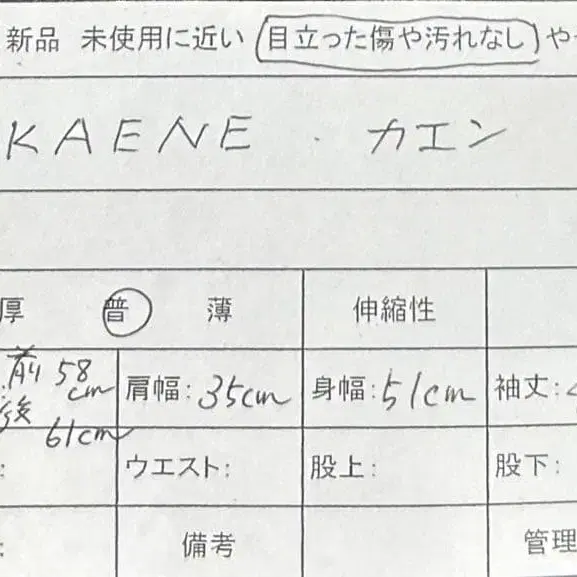 新品 未使用に近い 目立った傷や汚れなし や
KAENE . カエン
厚 普 薄 伸縮性
前 58cm 肩幅: 35cm 身幅: 51cm 袖丈:
後 61cm
: ウエスト: 股上: 股下:
: 備考 管理